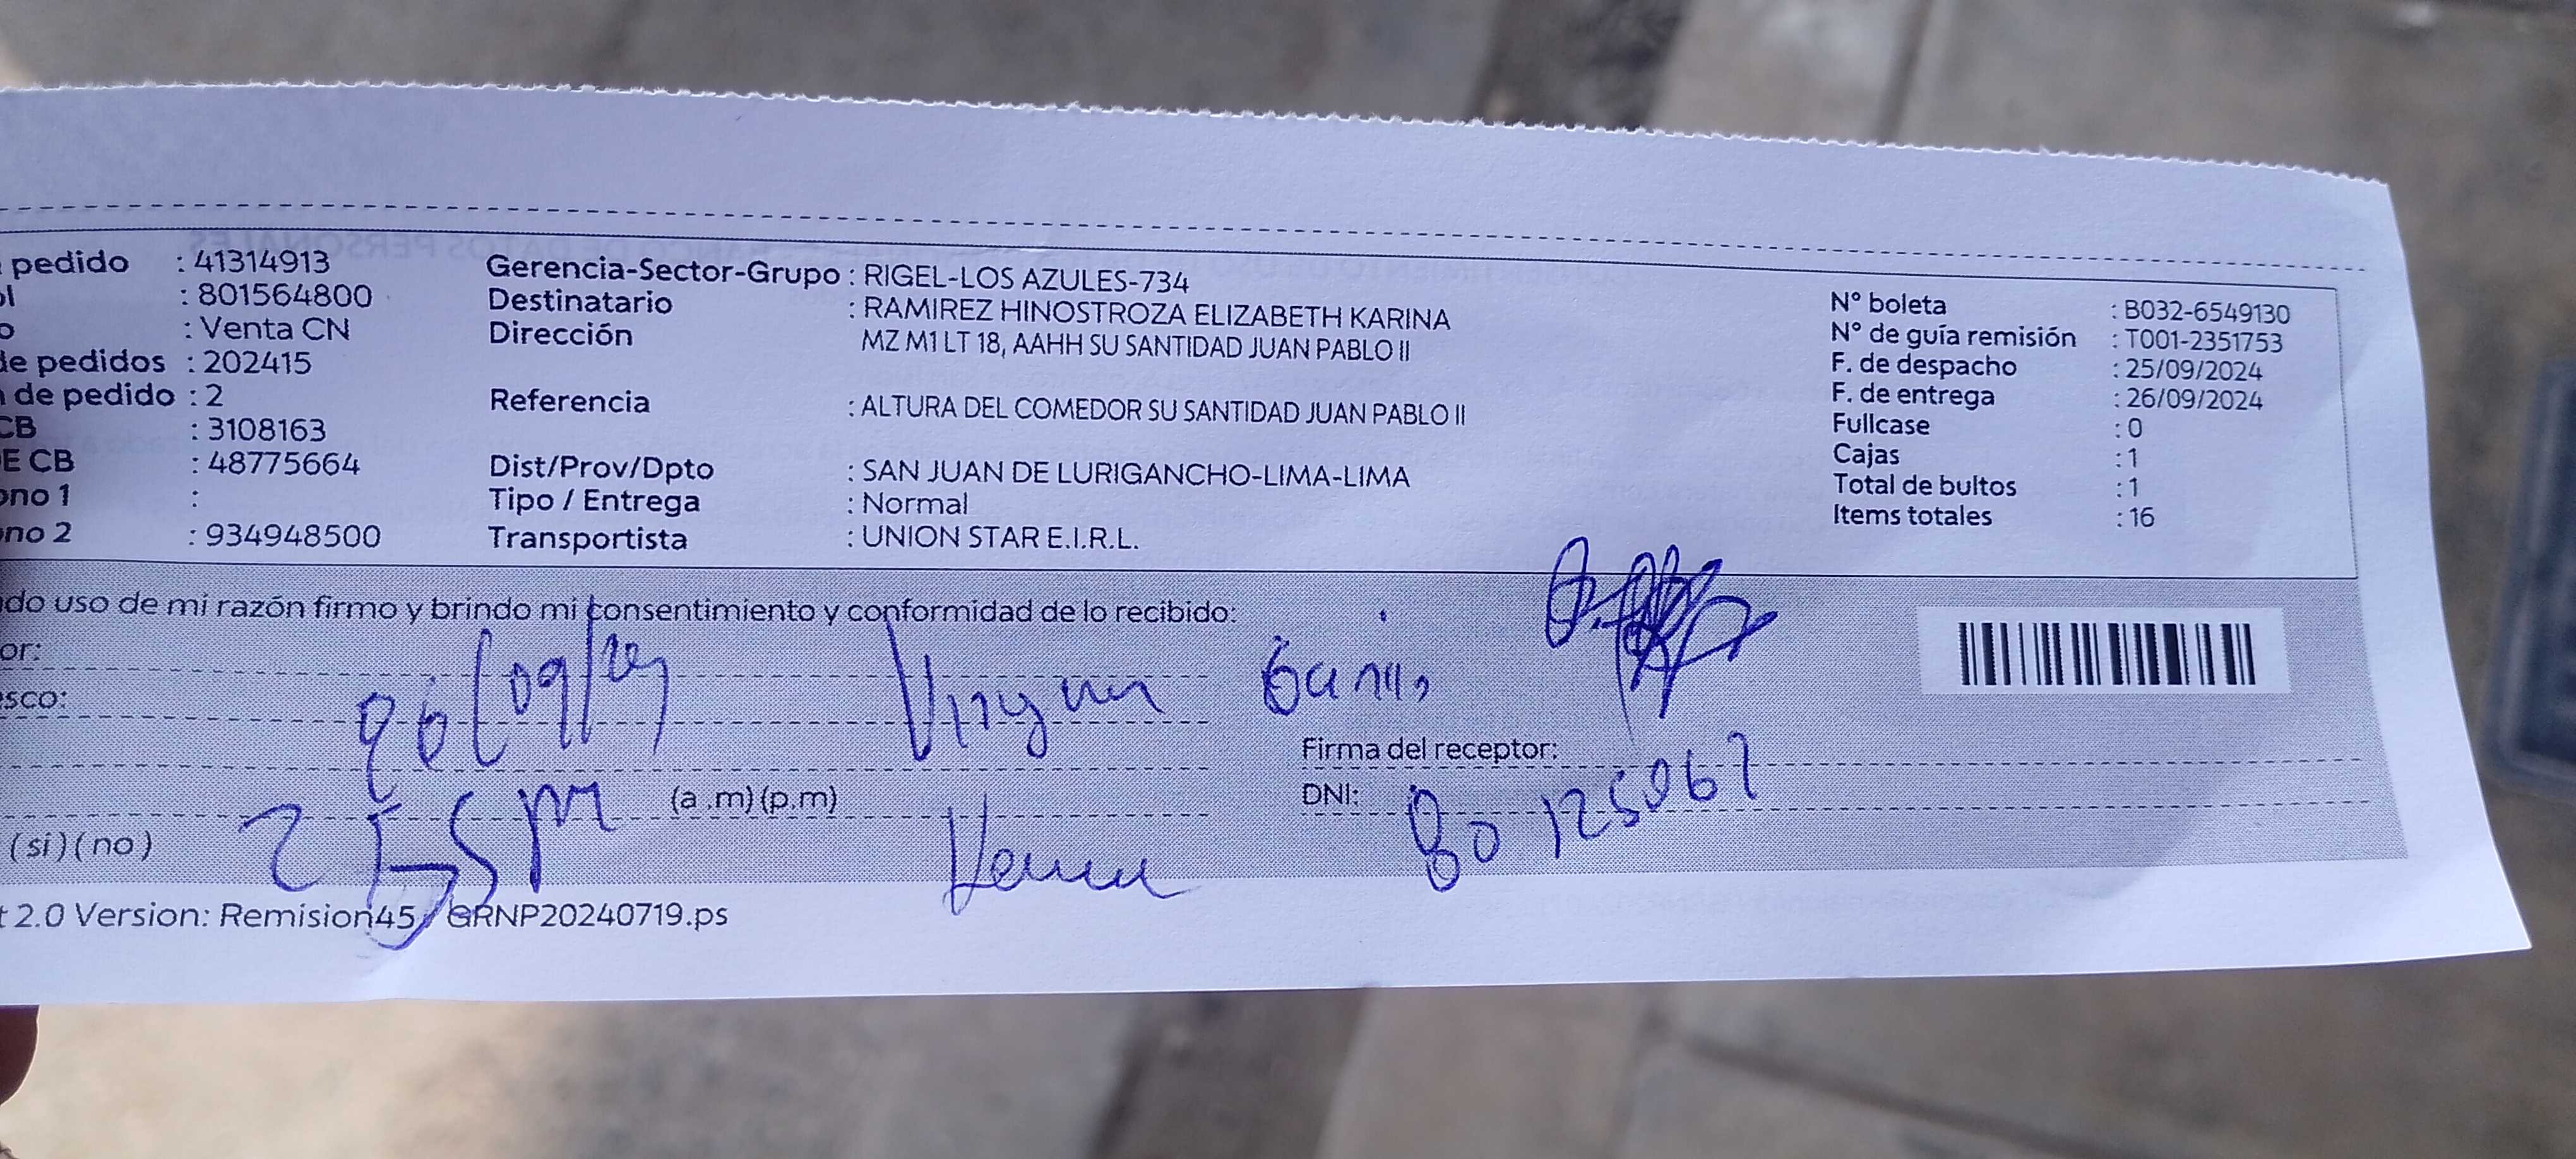 pedido : 41314913
: 801564800
: Venta CN
de pedidos : 202415
de pedido : 2
CB : 3108163
E CB : 48775664
ono 1 :
no 2 : 934948500
Gerencia-Sector-Grupo : RIGEL-LOS AZULES-734
Destinatario : RAMIREZ HINOSTROZA ELIZABETH KARINA
Dirección MZ M1 LT 18, AAHH SU SANTIDAD JUAN PABLO II
Referencia : ALTURA DEL COMEDOR SU SANTIDAD JUAN PABLO II
Dist/Prov/Dpto : SAN JUAN DE LURIGANCHO-LIMA-LIMA
Tipo / Entrega : Normal
Transportista : UNION STAR E.I.R.L.
N° boleta : B032-6549130
N° de guía remisión : T001-2351753
F. de despacho : 25/09/2024
F. de entrega : 26/09/2024
Fullcase : 0
Cajas : 1
Total de bultos : 1
Items totales : 16
do uso de mi razón firmo y brindo mi consentimiento y conformidad de lo recibido:
or:
esco:
Firma del receptor:
(a .m) (p.m)
DNI: 80125067
(si) (no)
t 2.0 Version: Remision45 / GRNP20240719.ps